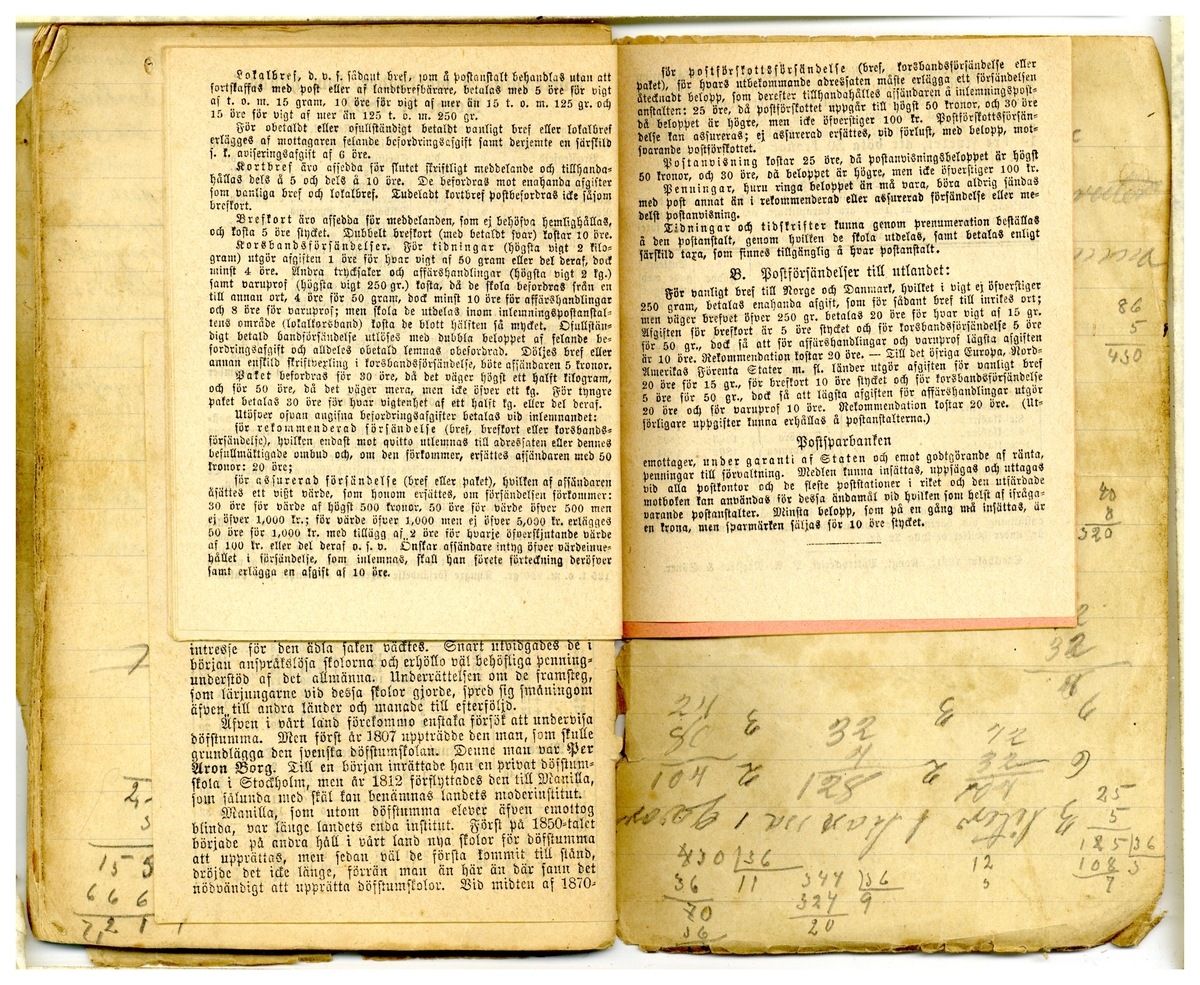 Lokalbref, d. v. s. sådant bref, som å postanstalt behandlas utan att
fortskaffas med post eller af landtbrefbärare, betalas med 5 öre för vigt
af t. o. m. 15 gram, 10 öre för vigt af mer än 15 t. o. m. 125 gr. och
15 öre för vigt af mer än 125 t. o. m. 250 gr.
För obetaldt eller ofullständigt betaldt vanligt bref eller lokalbref
erlägges af mottagaren felande befordringsafgift samt derjemte en särskild
s. k. aviseringsafgift af 6 öre.
Kortbref äro afsedda för slutet skriftligt meddelande och tillhanda-
hållas dels å 5 och dels å 10 öre. De befordras mot enahanda afgifter
som vanliga bref och lokalbref. Tudeladt kortbref postbefordras icke såsom
brefkort.
Brefkort äro afsedda för meddelanden, som ej behöfva hemlighållas,
och kosta 5 öre stycket. Dubbelt brefkort (med betaldt svar) kostar 10 öre.
Korsbandsförsändelser. För tidningar (högsta vigt 2 kilo-
gram) utgör afgiften 1 öre för hvar vigt af 50 gram eller del deraf, dock
minst 4 öre. Andra trycksaker och affärshandlingar (högsta vigt 2 kg.)
samt varuprof (högsta vigt 250 gr.) kosta, då de skola befordras från en
till annan ort, 4 öre för 50 gram, dock minst 10 öre för affärshandlingar
och 8 öre för varuprof; men skola de utdelas inom inlemningspostanstal-
tens område (lokalkorsband) kosta de blott hälften så mycket. Ofullstän-
digt betald bandförsändelse utlöses med dubbla beloppet af felande be-
fordringsafgift och alldeles obetald lemnas obefordrad. Döljes bref eller
annan enskild skriftvexling i korsbandsförsändelse, böte afsändaren 5 kronor.
Paket befordras för 30 öre, då det väger högst ett halft kilogram,
och för 50 öre, då det väger mera, men icke öfver ett kg. För tyngre
paket betalas 30 öre för hvar vigtenhet af ett halft kg. eller del deraf.
Utöfver ofvan angifna befordringsafgifter betalas vid inlemnandet:
för rekommenderad försändelse (bref, brefkort eller korsbands-
försändelse), hvilken endast mot qvitto utlemnas till adressaten eller dennes
befullmäktigade ombud och, om den förkommer, ersättes afsändaren med 50
kronor: 20 öre;
för assurerad försändelse (bref eller paket), hvilken af afsändaren
åsättes ett visst värde, som honom ersättes, om försändelsen förkommer:
30 öre för värde af högst 500 kronor, 50 öre för värde öfver 500 men
ej öfver 1,000 kr.; för värde öfver 1,000 men ej öfver 5,000 kr. erlägges
50 öre för 1,000 kr. med tillägg af 2 öre för hvarje öfverskjutande värde
af 100 kr. eller del deraf o. s. v. Önskar afsändare intyg öfver värdeinne-
hållet i försändelse, som inlemnas, skall han förete förteckning deröfver
samt erlägga en afgift af 10 öre.
intresse för den ädla saken väcktes. Snart utvidgades de i
början anspråkslösa skolorna och erhöllo väl behöfliga penning-
understöd af det allmänna. Underrättelsen om de framsteg,
som lärjungarne vid dessa skolor gjorde, spred sig småningom
äfven till andra länder och manade till efterföljd.
Äfven i vårt land förekommo enstaka försök att undervisa
döfstumma. Men först år 1807 uppträdde den man, som skulle
grundlägga den svenska döfstumskolan. Denne man var Per
Aron Borg. Till en början inrättade han en privat döfstum-
skola i Stockholm, men år 1812 förflyttades den till Manilla,
som sålunda med skäl kan benämnas landets moderinstitut.
Manilla, som utom döfstumma elever äfven emottog
blinda, var länge landets enda institut. Först på 1850-talet
började på andra håll i vårt land nya skolor för döfstumma
att upprättas, men sedan väl de första kommit till stånd,
dröjde det icke länge, förrän man än här än där fann det
nödvändigt att upprätta döfstumskolor. Vid midten af 1870-
för postförskottsförsändelse (bref, korsbandsförsändelse eller
paket), för hvars utbekommande adressaten måste erlägga ett försändelsen
åtecknadt belopp, som derefter tillhandahålles afsändaren å inlemningspost-
anstalten: 25 öre, då postförskottet uppgår till högst 50 kronor, och 30 öre
då beloppet är högre, men icke öfverstiger 100 kr. Postförskottsförsän-
delse kan assureras; ej assurerad ersättes, vid förlust, med belopp, mot-
svarande postförskottet.
Postanvisning kostar 25 öre, då postanvisningsbeloppet är högst
50 kronor, och 30 öre, då beloppet är högre, men icke öfverstiger 100 kr.
Penningar, huru ringa beloppet än må vara, böra aldrig sändas
med post annat än i rekommenderad eller assurerad försändelse eller me-
delst postanvisning.
Tidningar och tidskrifter kunna genom prenumeration beställas
å den postanstalt, genom hvilken de skola utdelas, samt betalas enligt
särskild taxa, som finnes tillgänglig å hvar postanstalt.
B. Postförsändelser till utlandet:
För vanligt bref till Norge och Danmark, hvilket i vigt ej öfverstiger
250 gram, betalas enahanda afgift, som för sådant bref till inrikes ort;
men väger brefvet öfver 250 gr. betalas 20 öre för hvar vigt af 15 gr.
Afgiften för brefkort är 5 öre stycket och för korsbandsförsändelse 5 öre
för 50 gr., dock så att för affärshandlingar och varuprof lägsta afgiften
är 10 öre. Rekommendation kostar 20 öre. — Till det öfriga Europa, Nord-
Amerikas Förenta Stater m. fl. länder utgör afgiften för vanligt bref
20 öre för 15 gr., för brefkort 10 öre stycket och för korsbandsförsändelse
5 öre för 50 gr., dock så att lägsta afgiften för affärshandlingar utgör
20 öre och för varuprof 10 öre. Rekommendation kostar 20 öre. (Ut-
förligare uppgifter kunna erhållas å postanstalterna.)
Postsparbanken
emottager, under garanti af Staten och emot godtgörande af ränta,
penningar till förvaltning. Medlen kunna insättas, uppsägas och uttagas
vid alla postkontor och de fleste poststationer i riket och den utfärdade
motboken kan användas för dessa ändamål vid hvilken som helst af ifråga-
varande postanstalter. Minsta belopp, som på en gång må insättas, är
en krona, men sparmärken säljas för 10 öre stycket.
86
5
430
40
8
320
32
25
5
125 36
108 3
430 36
36 11
70
36
344 36
324 9
20
12